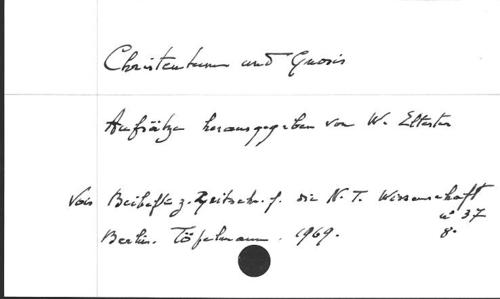 Christentum und Gnosis
Aufsätze herausgegeben von W. Eltester
Voir Beihefte z. Zeitschr. f. die N.T. Wissenschaft
n° 37
Berlin. Töpelmann. 1969. 8°